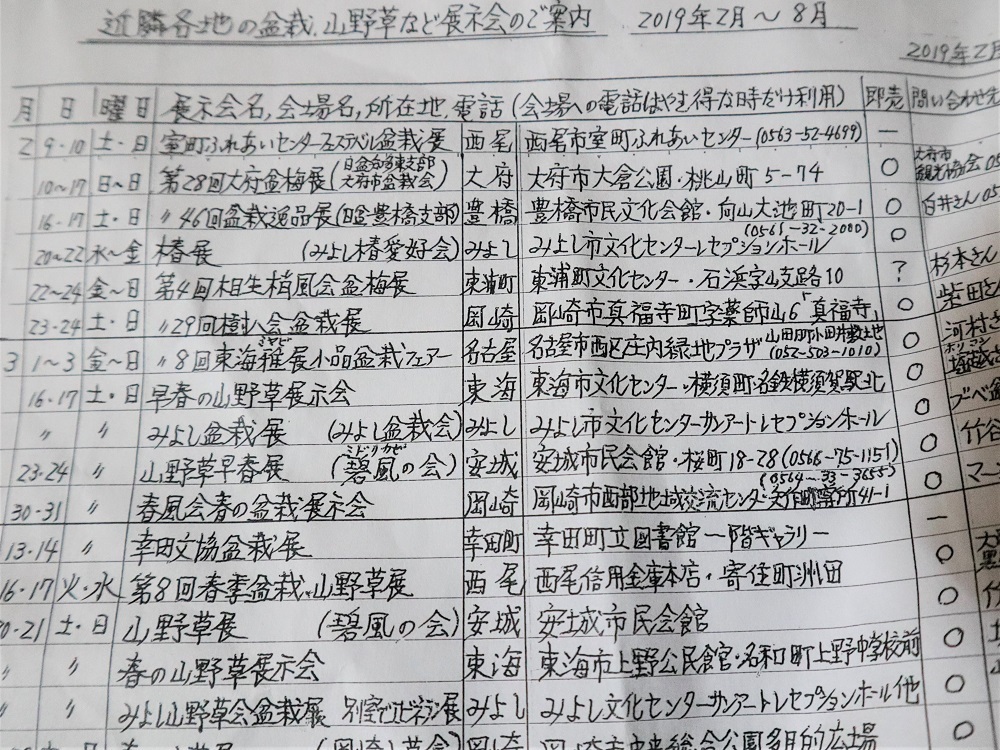 近隣各地の盆栽、山野草など展示会のご案内 2019年2月～8月
2019年2月
月 日 曜日 展示会名,会場名,所在地,電話(会場への電話はやむ得な時だけ利用) 即売 問い合わせ先
2 9・10 土・日 室町ふれあいセンターフェステバル盆栽展 西尾 西尾市室町ふれあいセンター(0563-52-4699) ー
10～17 日～日 第28回大府盆梅展(日盆台名東支部 大府市盆栽会) 大府 大府市大倉公園・桃山町5-74 ○ 大府市観光協会
16・17 土・日 〃46回盆栽逸品展(日盆豊橋支部) 豊橋 豊橋市民文化会館・向山大池町20-1 ○ 白井さん
20～22 水～金 椿展 (みよし椿愛好会) みよし みよし市文化センターレセプションホール (0561-32-2000) ○
22～24 金～日 第4回相生梢風会盆梅展 東浦町 東浦町文化センター・石浜字山支路10 ? 杉本さん
23・24 土・日 〃29回樹八会盆栽展 岡崎 岡崎市真福寺町字薬師山6「真福寺」 ○ 柴田さん
3 1～3 金～日 〃8回東海雅展小品盆栽フェアー 名古屋 名古屋市西区庄内緑地プラザ 山田町小田井敷土地 (052-503-1010) ○ 河村さ
16・17 土・日 早春の山野草展示会 東海 東海市文化センター・横須賀町・名鉄横須賀駅北 ○
〃 〃 みよし盆栽展 (みよし盆栽会) みよし みよし市文化センターサンアートレセプションホール ○
23・24 〃 山野草早春展 (碧風の会) 安城 安城市民会館・桜町18-28(0566-75-1151) ○ 竹谷
30・31 〃 春風会春の盆栽展示会 岡崎 岡崎市西部地域交流センター・矢作町 41-1 (0564-33-3665) ○ マー
13・14 〃 幸田文協盆栽展 幸田町 幸田町立図書館一階ギャラリー ー
16・17 火・水 第8回春季盆栽、山野草展 西尾 西尾信用金庫本店・寄住町洲田 ○
20・21 土・日 山野草展 (碧風の会) 安城 安城市民会館 ○
〃 〃 春の山野草展示会 東海 東海市上野公民館・名和町上野中学校前 ○
〃 〃 みよし山野草会盆栽展 みよし みよし文化センターサンアートレセプションホール他 ○
岡崎 岡崎市中央総合公園多目的広場 ○